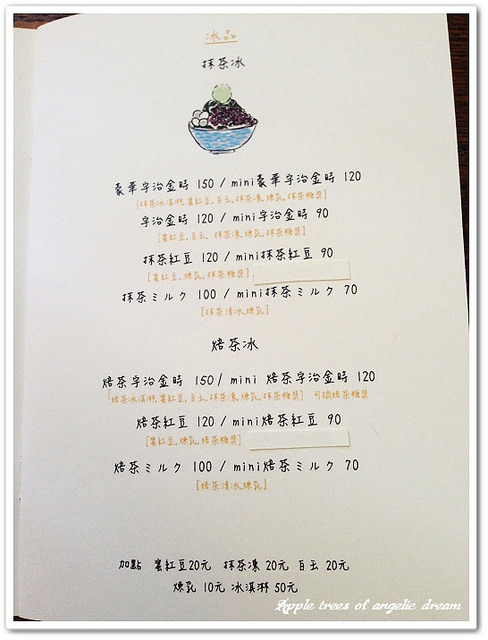 冰品
抹茶冰
豪華宇治金時 150 / mini豪華宇治金時 120
[抹茶冰淇淋,蜜紅豆,白玉,抹茶凍,煉乳,抹茶糖漿]
宇治金時 120 / mini宇治金時 90
[蜜紅豆,白玉,抹茶凍,煉乳,抹茶糖漿]
抹茶紅豆 120 / mini抹茶紅豆 90
[蜜紅豆,煉乳,抹茶糖漿]
抹茶ミルク 100 / mini抹茶ミルク 70
[抹茶清冰,煉乳]
焙茶冰
焙茶宇治金時 150/ mini 焙茶宇治金時 120
[焙茶冰淇淋,蜜紅豆,白玉,抹茶凍,煉乳,抹茶糖漿] 可換焙茶糖漿
焙茶紅豆 120 / mini焙茶紅豆 90
[蜜紅豆,煉乳,焙茶糖漿]
焙茶ミルク 100 / mini焙茶ミルク 70
[焙茶清冰,煉乳]
加點 蜜紅豆20元 抹茶凍 20元 白玉 20元
煉乳 10元 冰淇淋 50元
Apple trees of angelic dream